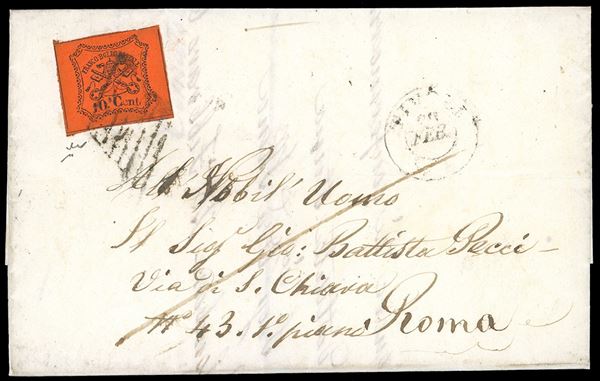 FRANCO BOLLO POSTALE
10 Cent
28
FEB.
Al Nobil' Uomo
Il Sig.r Gio: Battista Pecci -
Via di S. Chiara
N° 43. 1° piano Roma